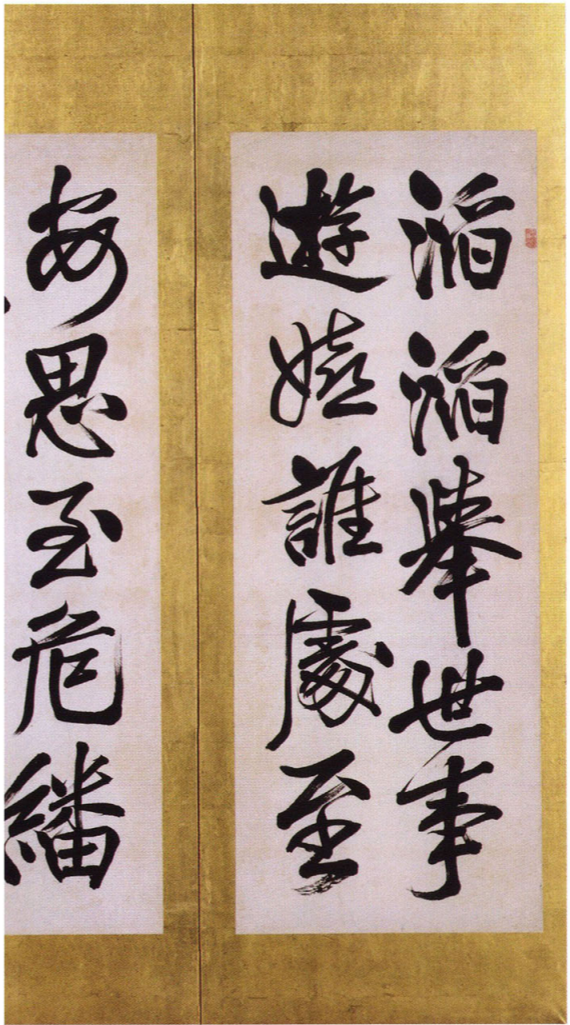 滔滔舉世事
遊嬉誰處至
安思至危繙